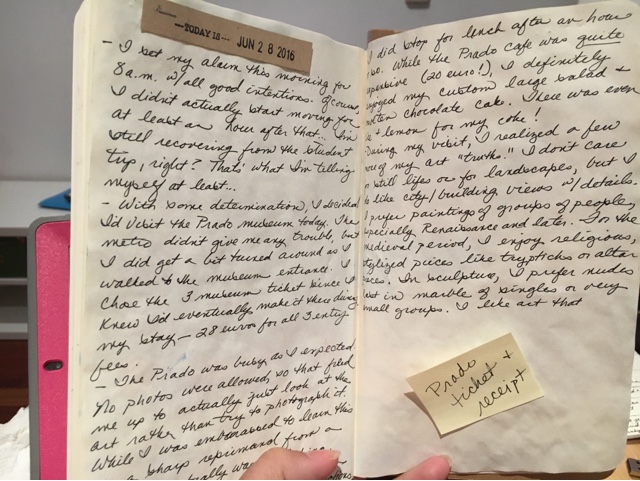 —TODAY IS— JUN 28 2016
- I set my alarm this morning for
8 a.m. w/ all good intentions. Of course,
I didn't actually start moving for
at least an hour after that... I'm
still recovering from the student
trip, right? That's what I'm telling
myself at least...
- With some determination, I decided
I'd visit the Prado museum today. The
metro didn't give me any trouble, but
I did get a bit turned around as I
walked to the museum entrance. I
chose the 3 museum ticket since I
knew I'd eventually make it there during
my stay – 28 euros for all 3 entry
fees.
- The Prado was busy as I expected
No photos were allowed, so that freed
me up to actually just look at the
art rather than try to photograph it.
While I was embarrassed to learn this
a sharp reprimand from a
I did stop for lunch after an hour
so. While the Prado cafe was quite
expensive (20 euro!), I definitely
enjoyed my custom large salad +
molten chocolate cake. There was even
a lemon for my coke!
During my visit, I realized a few
of my art "truths." I don't care
still lifes or for landscapes, but I
like city/building views w/ details.
I prefer paintings of groups of people,
especially Renaissance and later. For the
medieval period, I enjoy religious,
stylized pieces like tryptichs or altar
pieces. In sculpture, I prefer nudes
in marble of singles or very
small groups. I like art that
Prado
ticket +
receipt